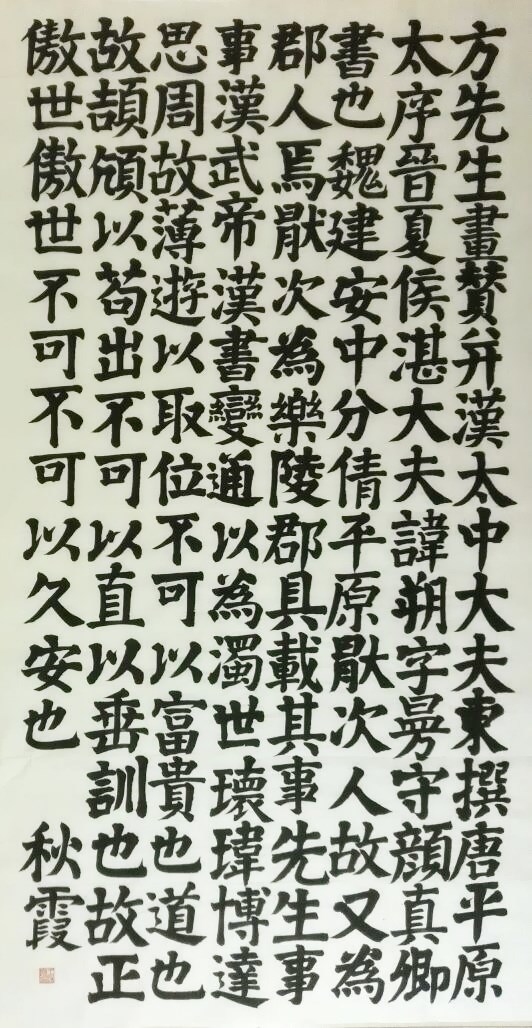 方先生畫贊并漢太中大夫東撰唐平原
太序晉夏侯湛大夫諱朔字曼守顏真卿
書也魏建安中分倩平原猒次人故又為
郡人焉猒次為樂陵郡具載其事先生事
事漢武帝漢書變通以為濁世瓌瑋博達
思周故薄遊以取位不可以富貴也道也
故頡頏以苟出不可以直以垂訓也故正
傲世傲世不可不可以久安也
秋霞